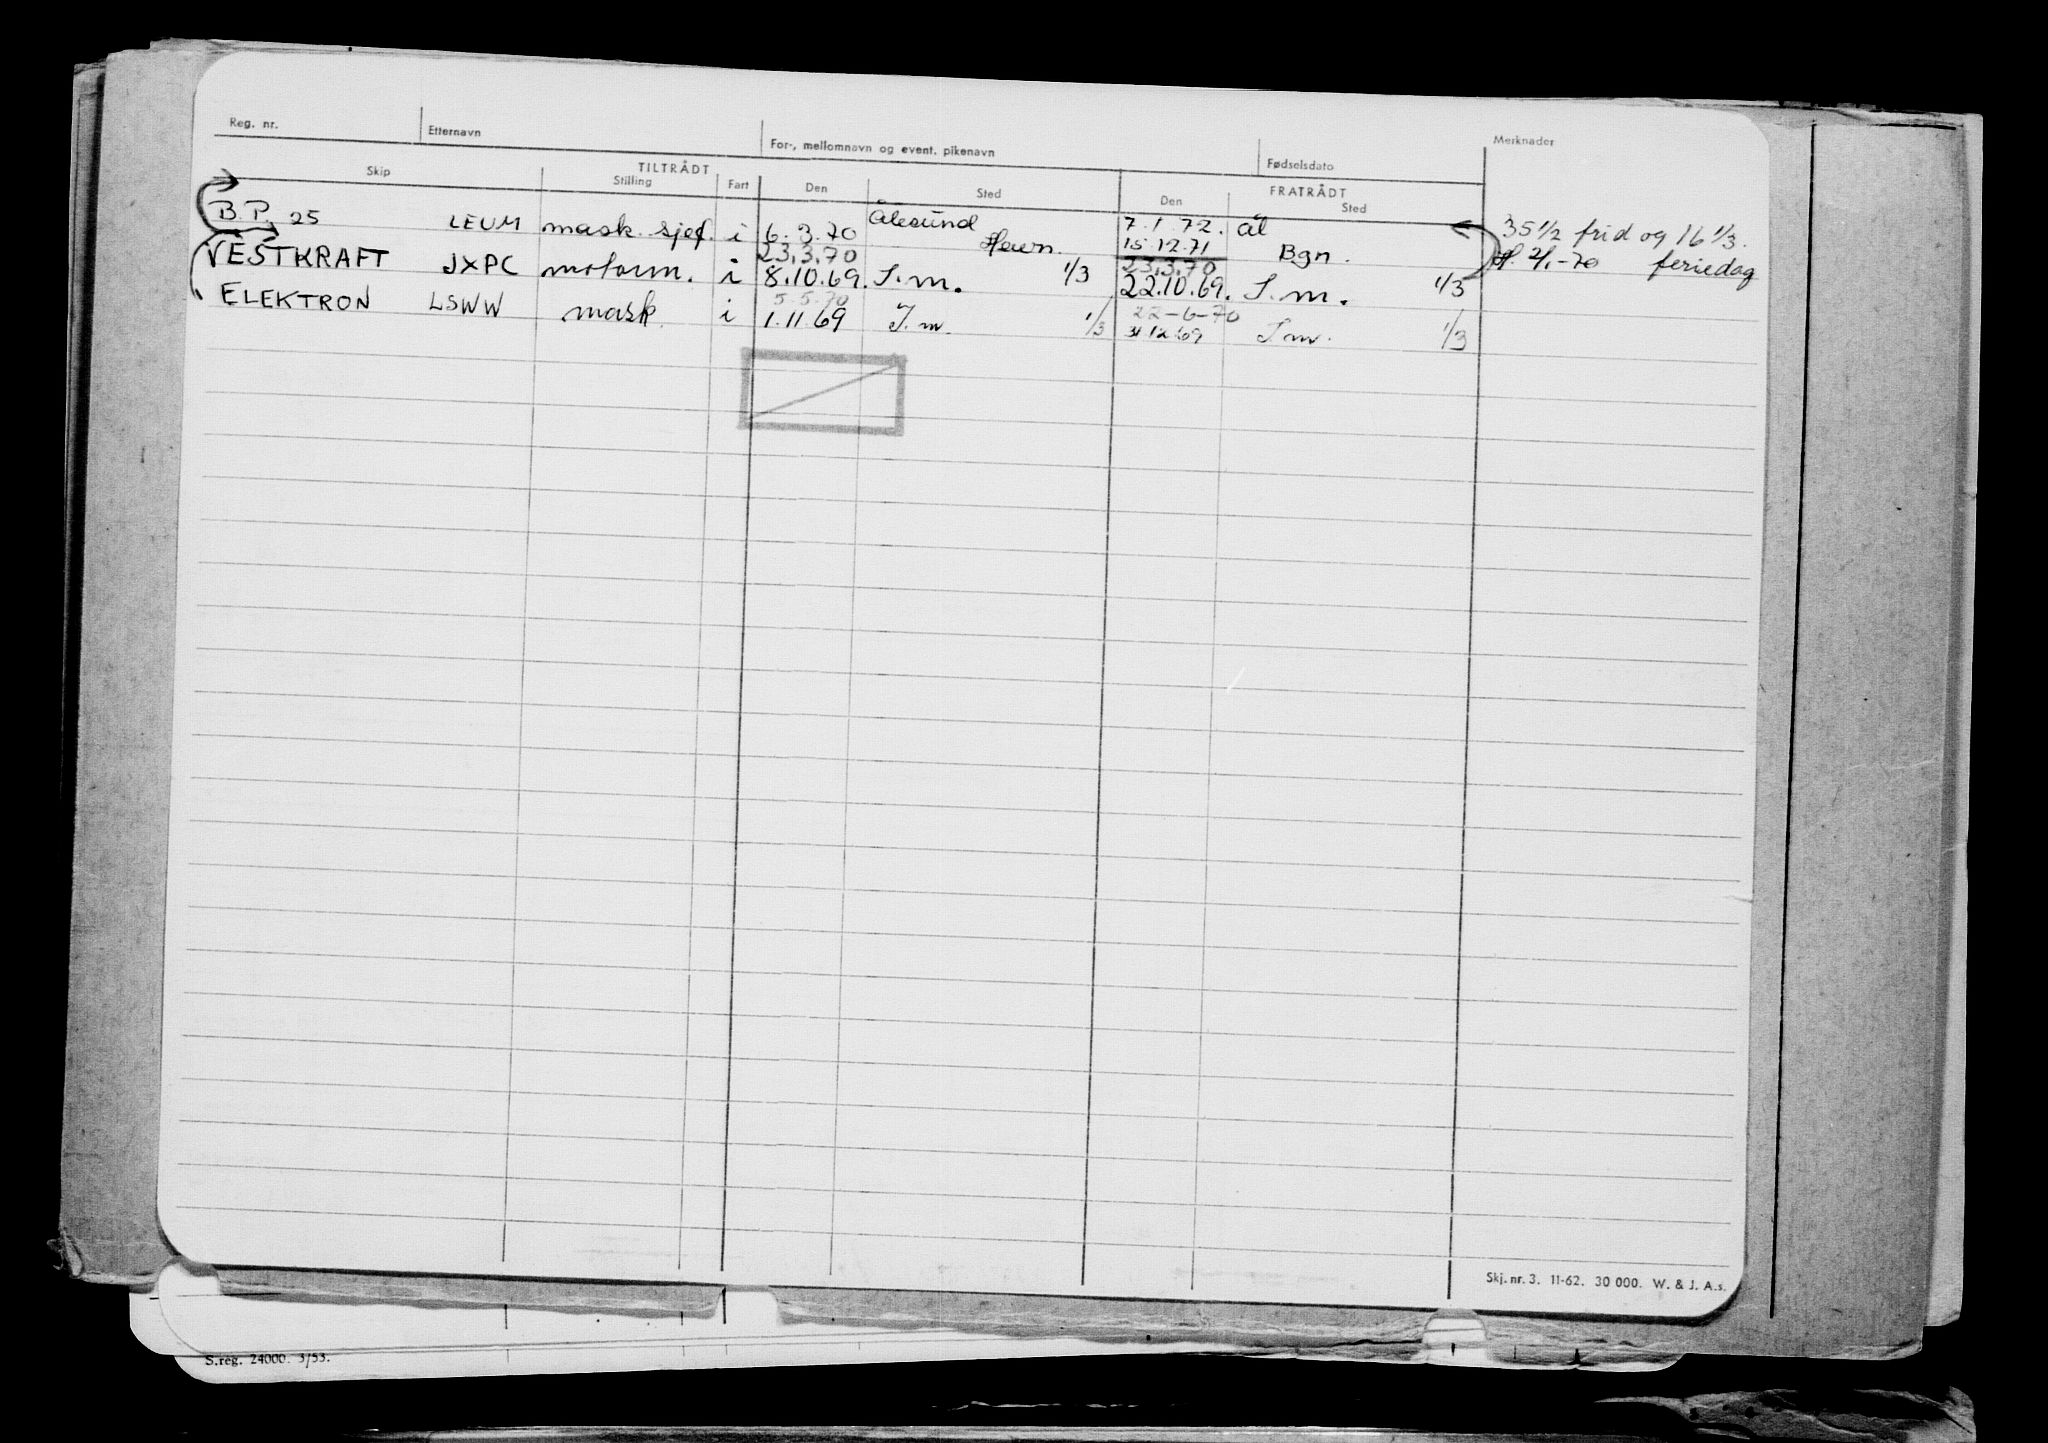 Reg. nr. Etternavn For-, mellomnavn og event. pikenavn Fødselsdato Merknader
TILTRÅDT FRATRÅDT
Skip Stilling Fart Den Sted Den Sted
B. P. 25 LEUM mask. sjef. i 6.3.70 Ålesund 7.1.72. Ål 35 1/2 frid og 16 1/3.
23.3.70 15.12.71 Bgn. feriedag
VESTKRAFT JXPC motorm. i 8.10.69. S.m. 1/3 23.3.70
22.10.69. S.m. 1/3
5.5.70 22-6-70
ELEKTRON LSWW mask. i 1.11.69 S.m. 1/3 31.12.69 S.m. 1/3
Skj. nr. 3. 11-62. 30 000. W. & J. A.s.
S.reg. 24000. 3/53.